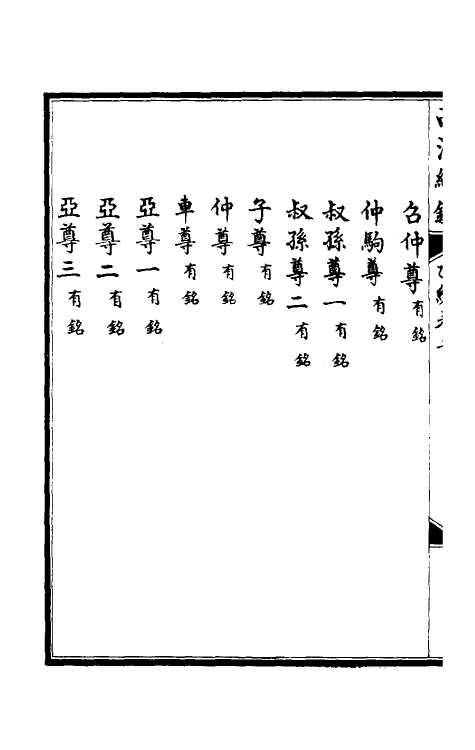 召仲尊有銘
仲駒尊有銘
叔孫尊一有銘
叔孫尊二有銘
子尊有銘
仲尊有銘
車尊有銘
亞尊一有銘
亞尊二有銘
亞尊三有銘